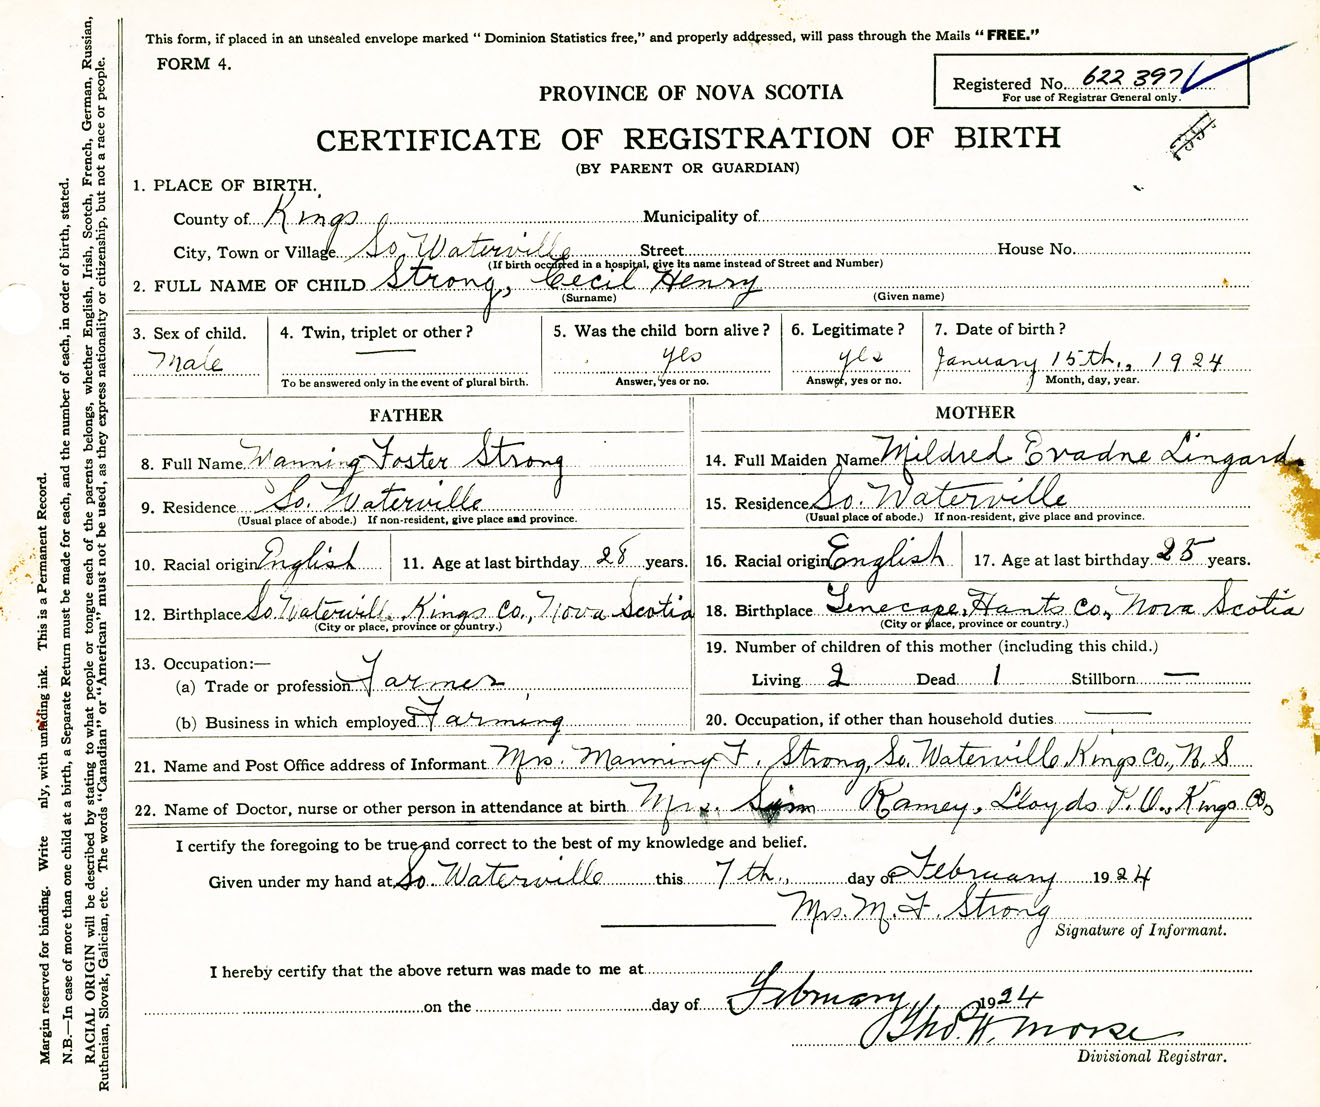 This form, if placed in an unsealed envelope marked "Dominion Statistics free," and properly addressed, will pass through the Mails "FREE."
FORM 4.
Registered No. 622 397
For use of Registrar General only.
PROVINCE OF NOVA SCOTIA
CERTIFICATE OF REGISTRATION OF BIRTH
(BY PARENT OR GUARDIAN)
1. PLACE OF BIRTH.
County of Kings Municipality of
City, Town or Village So Waterville Street House No.
(If birth occurred in a hospital, give its name instead of Street and Number)
2. FULL NAME OF CHILD Strong, Cecil Henry
(Surname) (Given name)
3. Sex of child. 4. Twin, triplet or other? 5. Was the child born alive? 6. Legitimate? 7. Date of birth?
Male — yes yes January 15th., 1924
To be answered only in the event of plural birth. Answer, yes or no. Answer, yes or no. Month, day, year.
FATHER
8. Full Name Manning Foster Strong
9. Residence So. Waterville
(Usual place of abode.) If non-resident, give place and province.
10. Racial origin English 11. Age at last birthday 28 years.
12. Birthplace So Waterville, Kings Co., Nova Scotia
(City or place, province or country.)
13. Occupation:—
(a) Trade or profession Farmer
(b) Business in which employed Farming
MOTHER
14. Full Maiden Name Mildred Evadne Lingard
15. Residence So. Waterville
(Usual place of abode.) If non-resident, give place and province.
16. Racial origin English 17. Age at last birthday 25 years.
18. Birthplace Tenecape, Hants Co, Nova Scotia
(City or place, province or country.)
19. Number of children of this mother (including this child.)
Living 2 Dead 1 Stillborn —
20. Occupation, if other than household duties —
21. Name and Post Office address of Informant Mrs. Manning F. Strong, So. Waterville, Kings Co., N. S
22. Name of Doctor, nurse or other person in attendance at birth Mrs. Ramey, Lloyds P. O., Kings Co,
I certify the foregoing to be true and correct to the best of my knowledge and belief.
Given under my hand at So. Waterville this 7th., day of February 1924
Mrs. M. F. Strong
Signature of Informant.
I hereby certify that the above return was made to me at
on the day of February 1924
Tho. H. Morse
Divisional Registrar.
Margin reserved for binding. Write nly, with unfading ink. This is a Permanent Record.
N.B.—In case of more than one child at a birth, a Separate Return must be made for each, and the number of each, in order of birth, stated.
RACIAL ORIGIN will be described by stating to what people or tongue each of the parents belongs, whether English, Irish, Scotch, French, German, Russian,
Ruthenian, Slovak, Galician, etc. The words "Canadian" or "American" must not be used, as they express nationality or citizenship, but not a race or people.